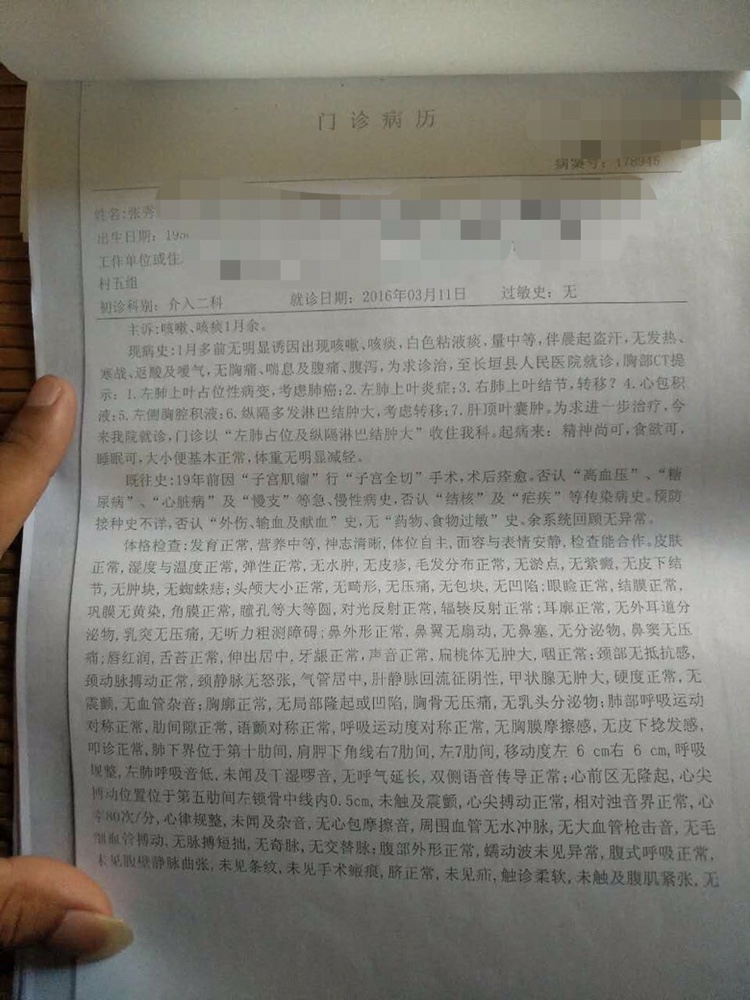 门诊病历
病案号: 178945
姓名:张秀
出生日期: 195
工作单位或住
村五组
初诊科别: 介入二科 就诊日期: 2016年03月11日 过敏史: 无
主诉:咳嗽、咳痰1月余。
现病史:1月多前无明显诱因出现咳嗽、咳痰, 白色粘液痰, 量中等, 伴晨起盗汗, 无发热、
寒战、返酸及嗳气, 无胸痛、喘息及腹痛、腹泻, 为求诊治, 至长垣县人民医院就诊, 胸部CT提
示: 1.左肺上叶占位性病变, 考虑肺癌; 2.左肺上叶炎症; 3.右肺上叶结节, 转移? 4.心包积
液; 5.左侧胸腔积液; 6.纵隔多发淋巴结肿大, 考虑转移; 7.肝顶叶囊肿。为求进一步治疗, 今
来我院就诊, 门诊以“左肺占位及纵隔淋巴结肿大”收住我科。起病来: 精神尚可, 食欲可,
睡眠可, 大小便基本正常, 体重无明显减轻。
既往史: 19年前因“子宫肌瘤”行“子宫全切”手术, 术后痊愈。否认“高血压”、“糖
尿病”、“心脏病”及“慢支”等急、慢性病史, 否认“结核”及“疟疾”等传染病史。预防
接种史不详, 否认“外伤、输血及献血”史, 无“药物、食物过敏”史。余系统回顾无异常。
体格检查: 发育正常, 营养中等, 神志清晰, 体位自主, 面容与表情安静, 检查能合作。皮肤
正常, 湿度与温度正常, 弹性正常, 无水肿, 无皮疹, 毛发分布正常, 无淤点, 无紫癜, 无皮下结
节, 无肿块, 无蜘蛛痣; 头颅大小正常, 无畸形, 无压痛, 无包块, 无凹陷; 眼睑正常, 结膜正常,
巩膜无黄染, 角膜正常, 瞳孔等大等圆, 对光反射正常, 辐辏反射正常; 耳廓正常, 无外耳道分
泌物, 乳突无压痛, 无听力粗测障碍; 鼻外形正常, 鼻翼无扇动, 无鼻塞, 无分泌物, 鼻窦无压
痛; 唇红润, 舌苔正常, 伸出居中, 牙龈正常, 声音正常, 扁桃体无肿大, 咽正常; 颈部无抵抗感,
颈动脉搏动正常, 颈静脉无怒张, 气管居中, 肝静脉回流征阴性, 甲状腺无肿大, 硬度正常, 无
震颤, 无血管杂音; 胸廓正常, 无局部隆起或凹陷, 胸骨无压痛, 无乳头分泌物; 肺部呼吸运动
对称正常, 肋间隙正常, 语颤对称正常, 呼吸运动度对称正常, 无胸膜摩擦感, 无皮下捻发感,
叩诊正常, 肺下界位于第十肋间, 肩胛下角线右7肋间, 左7肋间, 移动度左 6 cm右 6 cm, 呼吸
规整, 左肺呼吸音低, 未闻及干湿啰音, 无呼气延长, 双侧语音传导正常; 心前区无隆起, 心尖
搏动位置位于第五肋间左锁骨中线内0.5cm, 未触及震颤, 心尖搏动正常, 相对浊音界正常, 心
率80次/分, 心律规整, 未闻及杂音, 无心包摩擦音, 周围血管无水冲脉, 无大血管枪击音, 无毛
细血管搏动, 无脉搏短拙, 无奇脉, 无交替脉; 腹部外形正常, 蠕动波未见异常, 腹式呼吸正常,
未见腹壁静脉曲张, 未见条纹, 未见手术瘢痕, 脐正常, 未见疝, 触诊柔软, 未触及腹肌紧张, 无